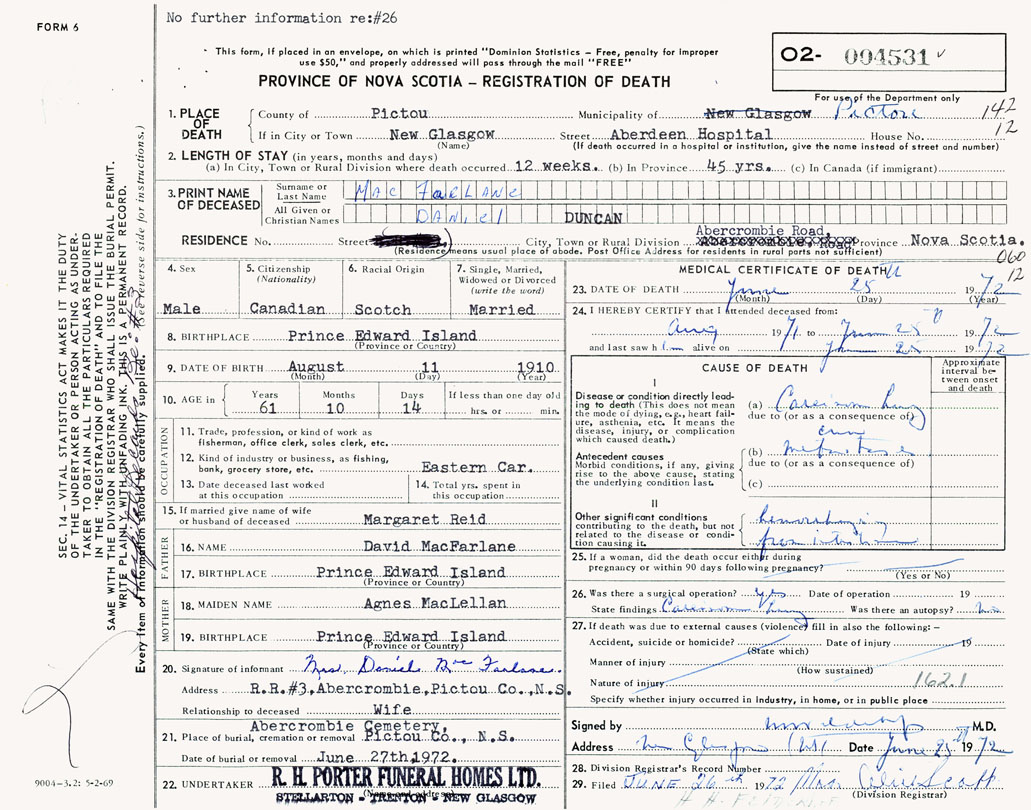 FORM 6
No further information re:#26
This form, if placed in an envelope, on which is printed "Dominion Statistics – Free, penalty for improper
use $50," and properly addressed will pass through the mail "FREE"
PROVINCE OF NOVA SCOTIA – REGISTRATION OF DEATH
O2- 004531
For use of the Department only
142
12
1. PLACE OF DEATH
County of Pictou Municipality of New Glasgow Pictou
If in City or Town New Glasgow Street Aberdeen Hospital House No.
(Name) (If death occurred in a hospital or institution, give the name instead of street and number)
2. LENGTH OF STAY (in years, months and days)
(a) In City, Town or Rural Division where death occurred 12 weeks. (b) In Province 45 yrs. (c) In Canada (if immigrant)
3. PRINT NAME OF DECEASED
Surname or Last Name MacFarlane
All Given or Christian Names Daniel DUNCAN
Abercrombie Road
RESIDENCE No. Street City, Town or Rural Division Province Nova Scotia.
(Residence means usual place of abode. Post Office Address for residents in rural parts not sufficient)
060
12
4. Sex
Male
5. Citizenship (Nationality)
Canadian
6. Racial Origin
Scotch
7. Single, Married, Widowed or Divorced (write the word)
Married
8. BIRTHPLACE Prince Edward Island
(Province or Country)
9. DATE OF BIRTH August 11 1910
(Month) (Day) (Year)
10. AGE in Years Months Days If less than one day old
61 10 14 hrs. or min.
OCCUPATION
11. Trade, profession or kind of work as
fisherman, office clerk, sales clerk, etc.
12. Kind of industry or business, as fishing,
bank, grocery store, etc. Eastern Car.
13. Date deceased last worked
at this occupation
14. Total yrs. spent in
this occupation
15. If married give name of wife
or husband of deceased Margaret Reid
FATHER
16. NAME David MacFarlane
17. BIRTHPLACE Prince Edward Island
(Province or Country)
MOTHER
18. MAIDEN NAME Agnes MacLellan
19. BIRTHPLACE Prince Edward Island
(Province or Country)
20. Signature of informant Mrs. Daniel MacFarlane.
Address R.R.#3,Abercrombie,Pictou Co.,N.S.
Relationship to deceased Wife
Abercrombie Cemetery,
21. Place of burial, cremation or removal Pictou Co., N.S.
Date of burial or removal June 27th,1972.
22. UNDERTAKER R. H. PORTER FUNERAL HOMES LTD.
(Name and address)
STELLARTON - TRENTON - NEW GLASGOW
MEDICAL CERTIFICATE OF DEATH
23. DATE OF DEATH June 25 1972
(Month) (Day) (Year)
24. I HEREBY CERTIFY that I attended deceased from:
Aug 1971 to June 25 1972
and last saw him alive on June 25 1972
CAUSE OF DEATH
Approximate interval between onset and death
I
Disease or condition directly leading to death (This does not mean the mode of dying, e.g., heart failure, asthenia, etc. It means the disease, injury, or complication which caused death.)
(a) Carcinoma Lung
due to (or as a consequence of)
Antecedent causes
Morbid conditions, if any, giving rise to the above cause, stating the underlying condition last.
(b) metastases
due to (or as a consequence of)
(c)
II
Other significant conditions contributing to the death, but not related to the disease or condition causing it.
hemorrhaging
from
25. If a woman, did the death occur either during
pregnancy or within 90 days following pregnancy?
(Yes or No)
26. Was there a surgical operation? yes Date of operation 19
State findings Carcinoma Lung Was there an autopsy? No
27. If death was due to external causes (violence) fill in also the following:–
Accident, suicide or homicide? Date of injury 19
(State which)
Manner of injury
(How sustained)
Nature of injury 162.1
Specify whether injury occurred in Industry, in home, or in public place
Signed by M.D.
Address New Glasgow N.S. Date June 25 1972
28. Division Registrar's Record Number
29. Filed JUNE 26th 1972 Mrs.
(Division Registrar)
SEC. 14 – VITAL STATISTICS ACT MAKES IT THE DUTY
OF THE UNDERTAKER OR PERSON ACTING AS UNDERTAKER
TO OBTAIN ALL THE PARTICULARS REQUIRED
IN THE "REGISTRATION OF DEATH" AND TO FILE THE
SAME WITH THE DIVISION REGISTRAR WHO SHALL ISSUE THE BURIAL PERMIT.
WRITE PLAINLY WITH UNFADING INK. THIS IS A PERMANENT RECORD.
Every item of information should be carefully supplied. (See reverse side for instructions.)
9004-3.2: 5-2-69